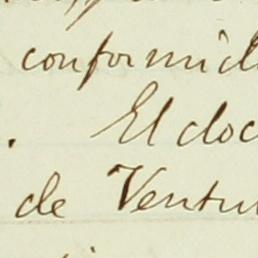 conformid
. El doc
de Ventu